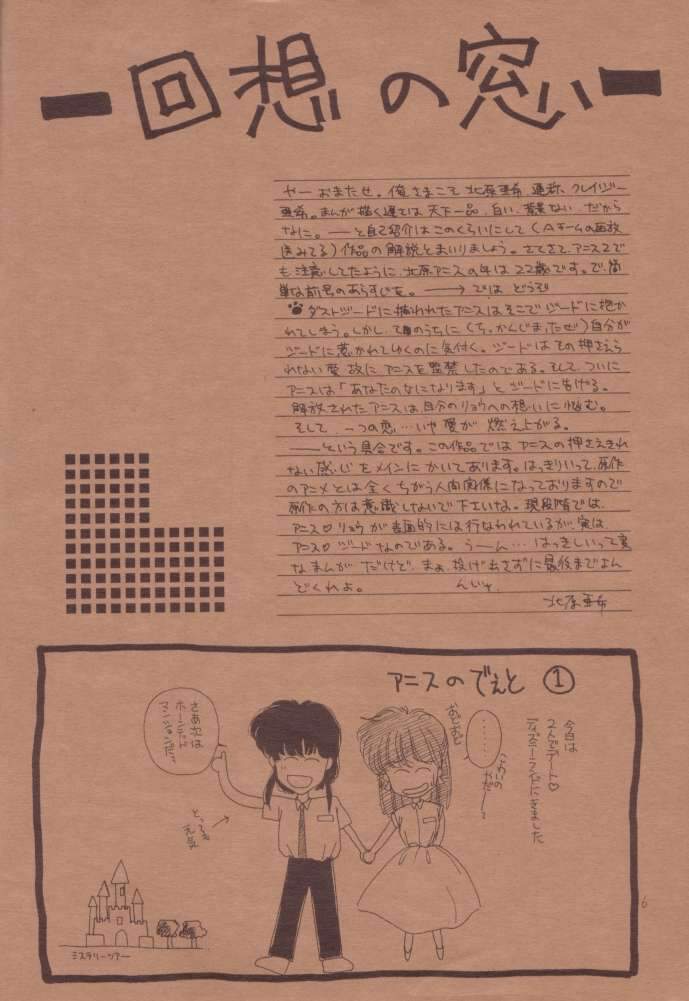 ー回想の窓ー
やー おまたせ。俺さまこそ 北原亜希 通称、クレイジー
亜希。まんが描く速さは 天下一品、白い、背景ない。だから
なに。——と自己紹介はこのくらいにして(Aチームの再放
送みてる)作品の解説とまいりましょう。さてさて、アニス2で
も注意してたように、北原アニスの年は22歳です。で、簡
単な前号のあらすじを。——→ では どうぞ
ダストジードに捕われたアニスはそこでジードに抱か
れてしまう。しかし、そのうちに(ち、かんじまったぜ)自分が
ジードに惹かれてゆくのに気付く。ジードはその押さえら
れない愛故にアニスを監禁したのである。そして、ついに
アニスは「あなたのなにになります」とジードに告げる。
解放されたアニスは自分のリョウへの想いに悩む。
そして 一つの恋…いや愛が 燃え上がる。
——という具合です。この作品では アニスの押さえきれ
ない感じをメインにかいてあります。はっきりいって、原作
のアニメとは全くちがう人間関係になっておりますので
原作の方は意識しないで下さいな。現段階では、
アニス♡リョウが表面的には行なわれているが、実は、
アニス♡ジードなのである。うーん…はっきしいって変
なまんがだけど、まぁ、投げ出さずに最後までよん
どくれよ。
北原亜希
アニスのでぇと ①
今日は
2人でデート♡
ディズニーランドにきました
さあ次は
ホーンテッド
マンションだっ
・・・・・・
おどおど
やだー
とっても
元気
ミステリーツアー
6